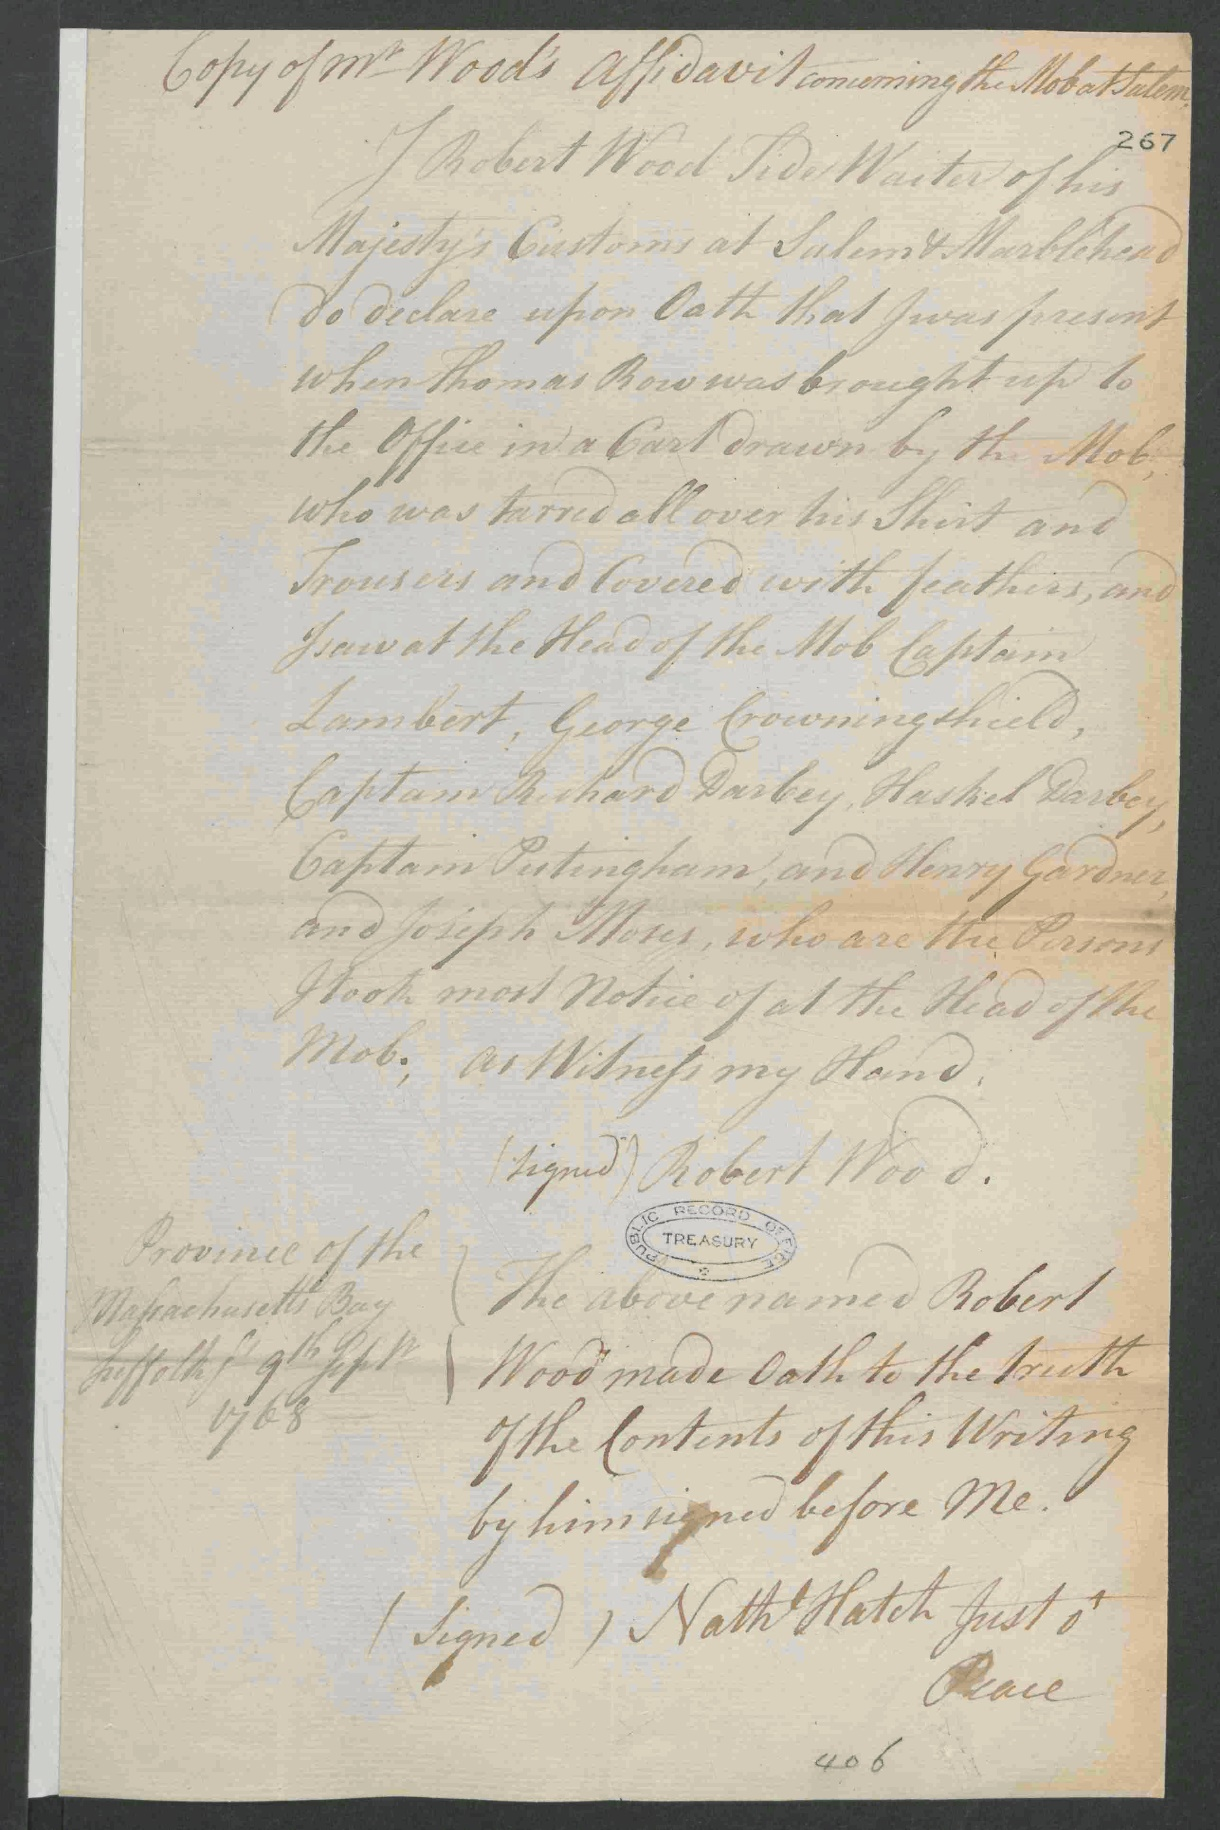 Copy of Mr Wood's Affidavit concerning the Mob at Salem.
267
I Robert Wood Tide Waiter of his
Majesty's Customs at Salem & Marblehead
do declare upon Oath that I was present
when Thomas Row was brought up to
the Office in a Cart drawn by the Mob,
who was tarred all over his Shirt and
Trousers and Covered with feathers, and
I saw at the Head of the Mob Captain
Lambert, George Crowningshield,
Captain Richard Darbey, Haskel Darbey,
Captain Putingham, and Henry Gardner,
and Joseph Moses, who are the Persons
I took most Notice of at the Head of the
Mob; as Witness my Hand.
(signed) Robert Wood.
PUBLIC RECORD OFFICE
TREASURY
Province of the
Massachusetts Bay
Suffolk ss 9th Sept
1768
The above named Robert
Wood made Oath to the truth
of the Contents of this Writing
by him signed before Me.
(Signed) Nathl Hatch Just o
Peace
406